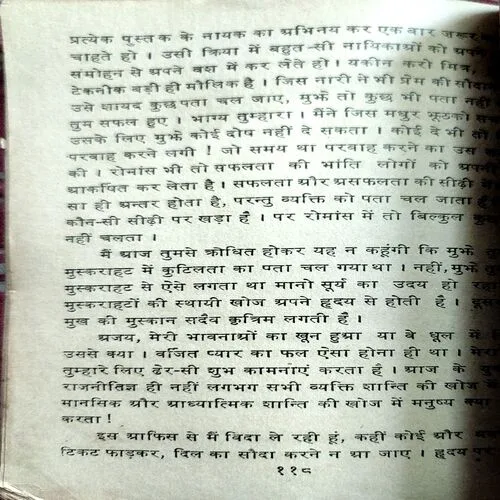 प्रत्येक पुस्तक के नायक का अभिनय कर एक बार ज़रूर
चाहते हो । उसी क्रिया में बहुत-सी नायिकाओं को अपने
संमोहन से अपने वश में कर लेते हो । यकीन करो मित्र,
टेकनीक बड़ी ही मौलिक है । जिस नारी ने भी प्रेम की सौदा
उसे शायद कुछ पता चल जाए, मुझे तो कुछ भी पता नहीं
तुम सफल हुए । भाग्य तुम्हारा । मैंने जिस मधुर झूठ को स
उसके लिए मुझे कोई दोष नहीं दे सकता । कोई दे भी तो
परवाह करने लगी ! जो समय था परवाह करने का उस
की । रोमांस भी तो सफलता की भांति लोगों को अपनी
आकर्षित कर लेता है । सफलता और असफलता की सीढ़ी में
सा ही अन्तर होता है, परन्तु व्यक्ति को पता चल जाता है
कौन-सी सीढ़ी पर खड़ा है । पर रोमांस में तो बिल्कुल कु
नहीं चलता ।
मैं आज तुमसे क्रोधित होकर यह न कहूंगी कि मुझे
मुस्कराहट में कुटिलता का पता चल गया था । नहीं, मुझे
मुस्कराहट से ऐसे लगता था मानो सूर्य का उदय हो रहा
मुस्कराहटों की स्थायी खोज अपने हृदय से होती है । दूस
मुख की मुस्कान सदैव कृत्रिम लगती है ।
अजय, मेरी भावनाओं का खून हुआ या वे धूल में
उससे क्या । वर्जित प्यार का फल ऐसा होना ही था । मे
तुम्हारे लिए ढेर-सी शुभ कामनाएं करता है । आज के यु
राजनीतिज्ञ ही नहीं लगभग सभी व्यक्ति शान्ति की खोज में
मानसिक और आध्यात्मिक शान्ति की खोज में मनुष्य क्या
करता !
इस आफिस से मैं विदा ले रही हूं, कहीं कोई और
टिकट फाड़कर, दिल का सौदा करने न आ जाए । हृदय पर
११८